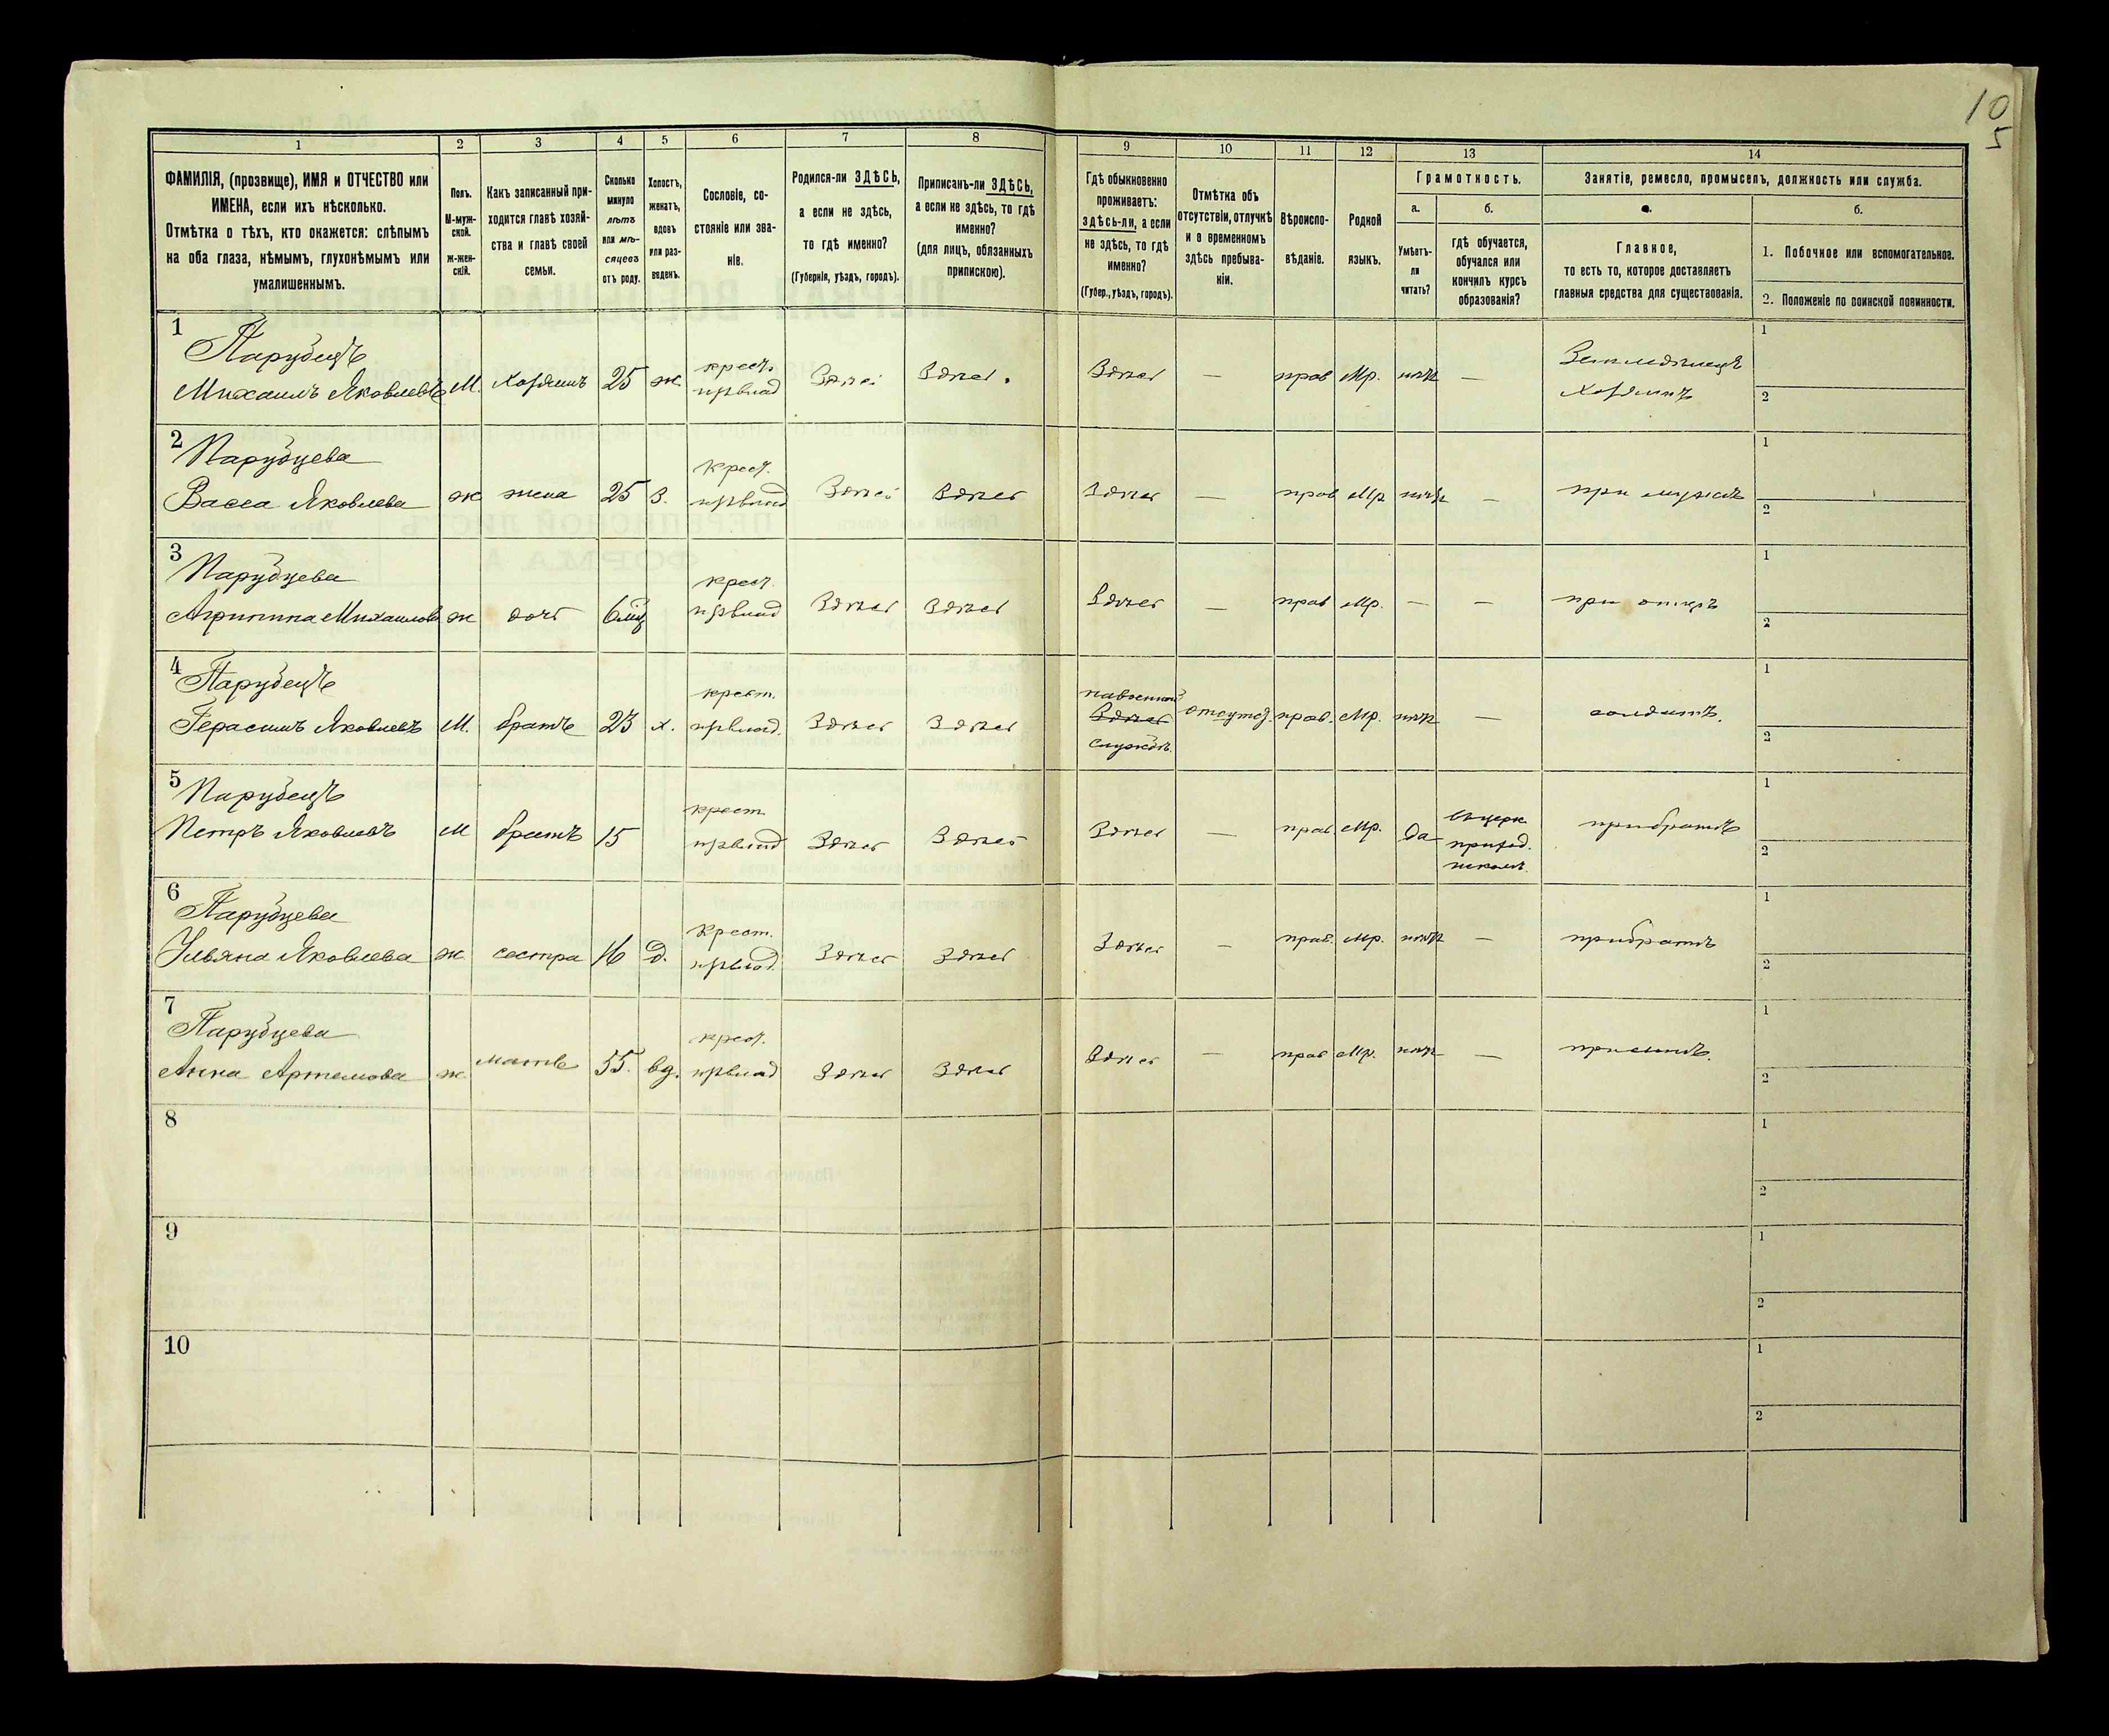 10
5
1
2
3
4
5
6
7
8
9
10
11
12
13
14
ФАМИЛІЯ, (прозвище), ИМЯ и ОТЧЕСТВО или
ИМЕНА, если ихъ нѣсколько.
Отмѣтка о тѣхъ, кто окажется: слѣпымъ
на оба глаза, нѣмымъ, глухонѣмымъ или
умалишеннымъ.
Полъ.
М-муж-
ской.
Ж-жен-
скій.
Какъ записанный при-
ходится главѣ хозяй-
ства и главѣ своей
семьи.
Сколько
минуло
лѣтъ
или мѣ-
сяцевъ
отъ роду.
Холостъ,
женатъ,
вдовъ
или раз-
веденъ.
Сословіе, со-
стояніе или зва-
ніе.
Родился-ли ЗДѢСЬ,
а если не здѣсь,
то гдѣ именно?
(Губернія, уѣздъ, городъ).
Приписанъ-ли ЗДѢСЬ,
а если не здѣсь, то гдѣ
именно?
(для лицъ, обязанныхъ
припискою).
Гдѣ обыкновенно
проживаетъ:
ЗДѢСЬ-ЛИ, а если
не здѣсь, то гдѣ
именно?
(Губер., уѣздъ, городъ).
Отмѣтка объ
отсутствіи, отлучкѣ
и о временномъ
здѣсь пребыва-
ніи.
Вѣроиспо-
вѣданіе.
Родной
языкъ.
Грамотность.
а.
Умѣетъ-
ли
читать?
б.
гдѣ обучается,
обучался или
кончилъ курсъ
образованія?
Занятіе, ремесло, промыселъ, должность или служба.
а.
Главное,
то есть то, которое доставляетъ
главныя средства для существованія.
б.
1. Побочное или вспомогательное.
2. Положеніе по воинской повинности.
1
Парубецъ
Михаилъ Яковлевъ М. хозяинъ 25 ж. крест. Здѣсь Здѣсь. Здѣсь — прав Мр. нѣтъ — Земледѣлецъ
хозяинъ
1
2
2
Парубцева
Васса Яковлева ж жена 25 З. крест. Здѣсь Здѣсь Здѣсь — прав Мр нѣтъ — при мужѣ
1
2
3
Парубцева
Агрипина Михаилов ж дочь 6 мц крест. Здѣсь Здѣсь Здѣсь — прав Мр. — — при отцѣ
1
2
4
Парубецъ
Герасимъ Яковлевъ М. братъ 23 х. крест. Здѣсь Здѣсь навоенной
Здѣсь
службѣ. отсутст. прав. Мр. нѣтъ — солдатъ.
1
2
5
Парубецъ
Петръ Яковлевъ М братъ 15 крест. Здѣсь Здѣсь Здѣсь — прав Мр. Да вцерк
приход.
школѣ. прибратѣ
1
2
6
Парубцева
Ульяна Яковлева ж сестра 16 д. крест. Здѣсь Здѣсь Здѣсь — прав. Мр. нѣтъ — прибратѣ
1
2
7
Парубцева
Анна Артемова ж. мать 55. вд. крест. Здѣсь Здѣсь Здѣсь — прав Мр. нѣтъ — присынѣ.
1
2
8
1
2
9
1
2
10
1
2